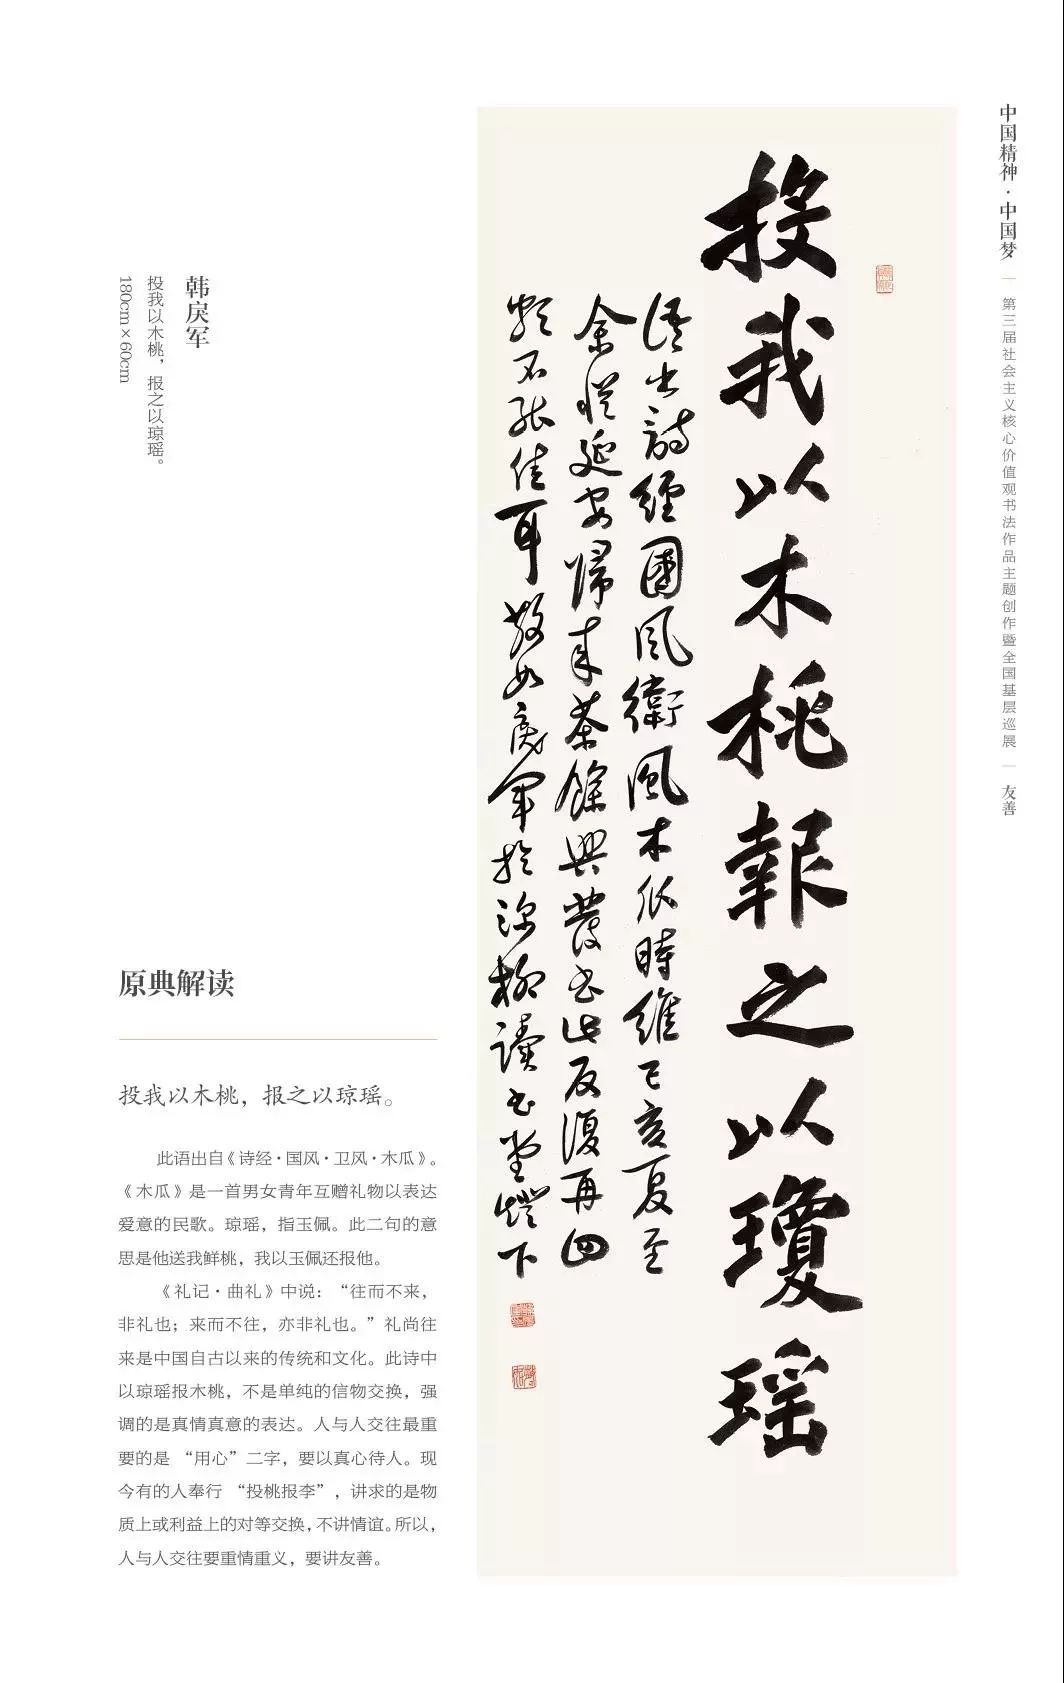 中国精神·中国梦 | 第三届社会主义核心价值观书法作品主题创作暨全国基层巡展 | 友善
投我以木桃報之以瓊瑤
語出詩經國風衛風木瓜時維己亥夏至
余從延安歸来茶餘興發書此反復再四
不能佳耳敬如戾軍於深柳讀書堂燈下
韩戾军
投我以木桃，报之以琼瑶。
180cm×60cm
原典解读
投我以木桃，报之以琼瑶。
此语出自《诗经·国风·卫风·木瓜》。
《木瓜》是一首男女青年互赠礼物以表达
爱意的民歌。琼瑶，指玉佩。此二句的意
思是他送我鲜桃，我以玉佩还报他。
《礼记·曲礼》中说：“往而不来，
非礼也；来而不往，亦非礼也。”礼尚往
来是中国自古以来的传统和文化。此诗中
以琼瑶报木桃，不是单纯的信物交换，强
调的是真情真意的表达。人与人交往最重
要的是 “用心”二字，要以真心待人。现
今有的人奉行 “投桃报李”，讲求的是物
质上或利益上的对等交换，不讲情谊。所以，
人与人交往要重情重义，要讲友善。